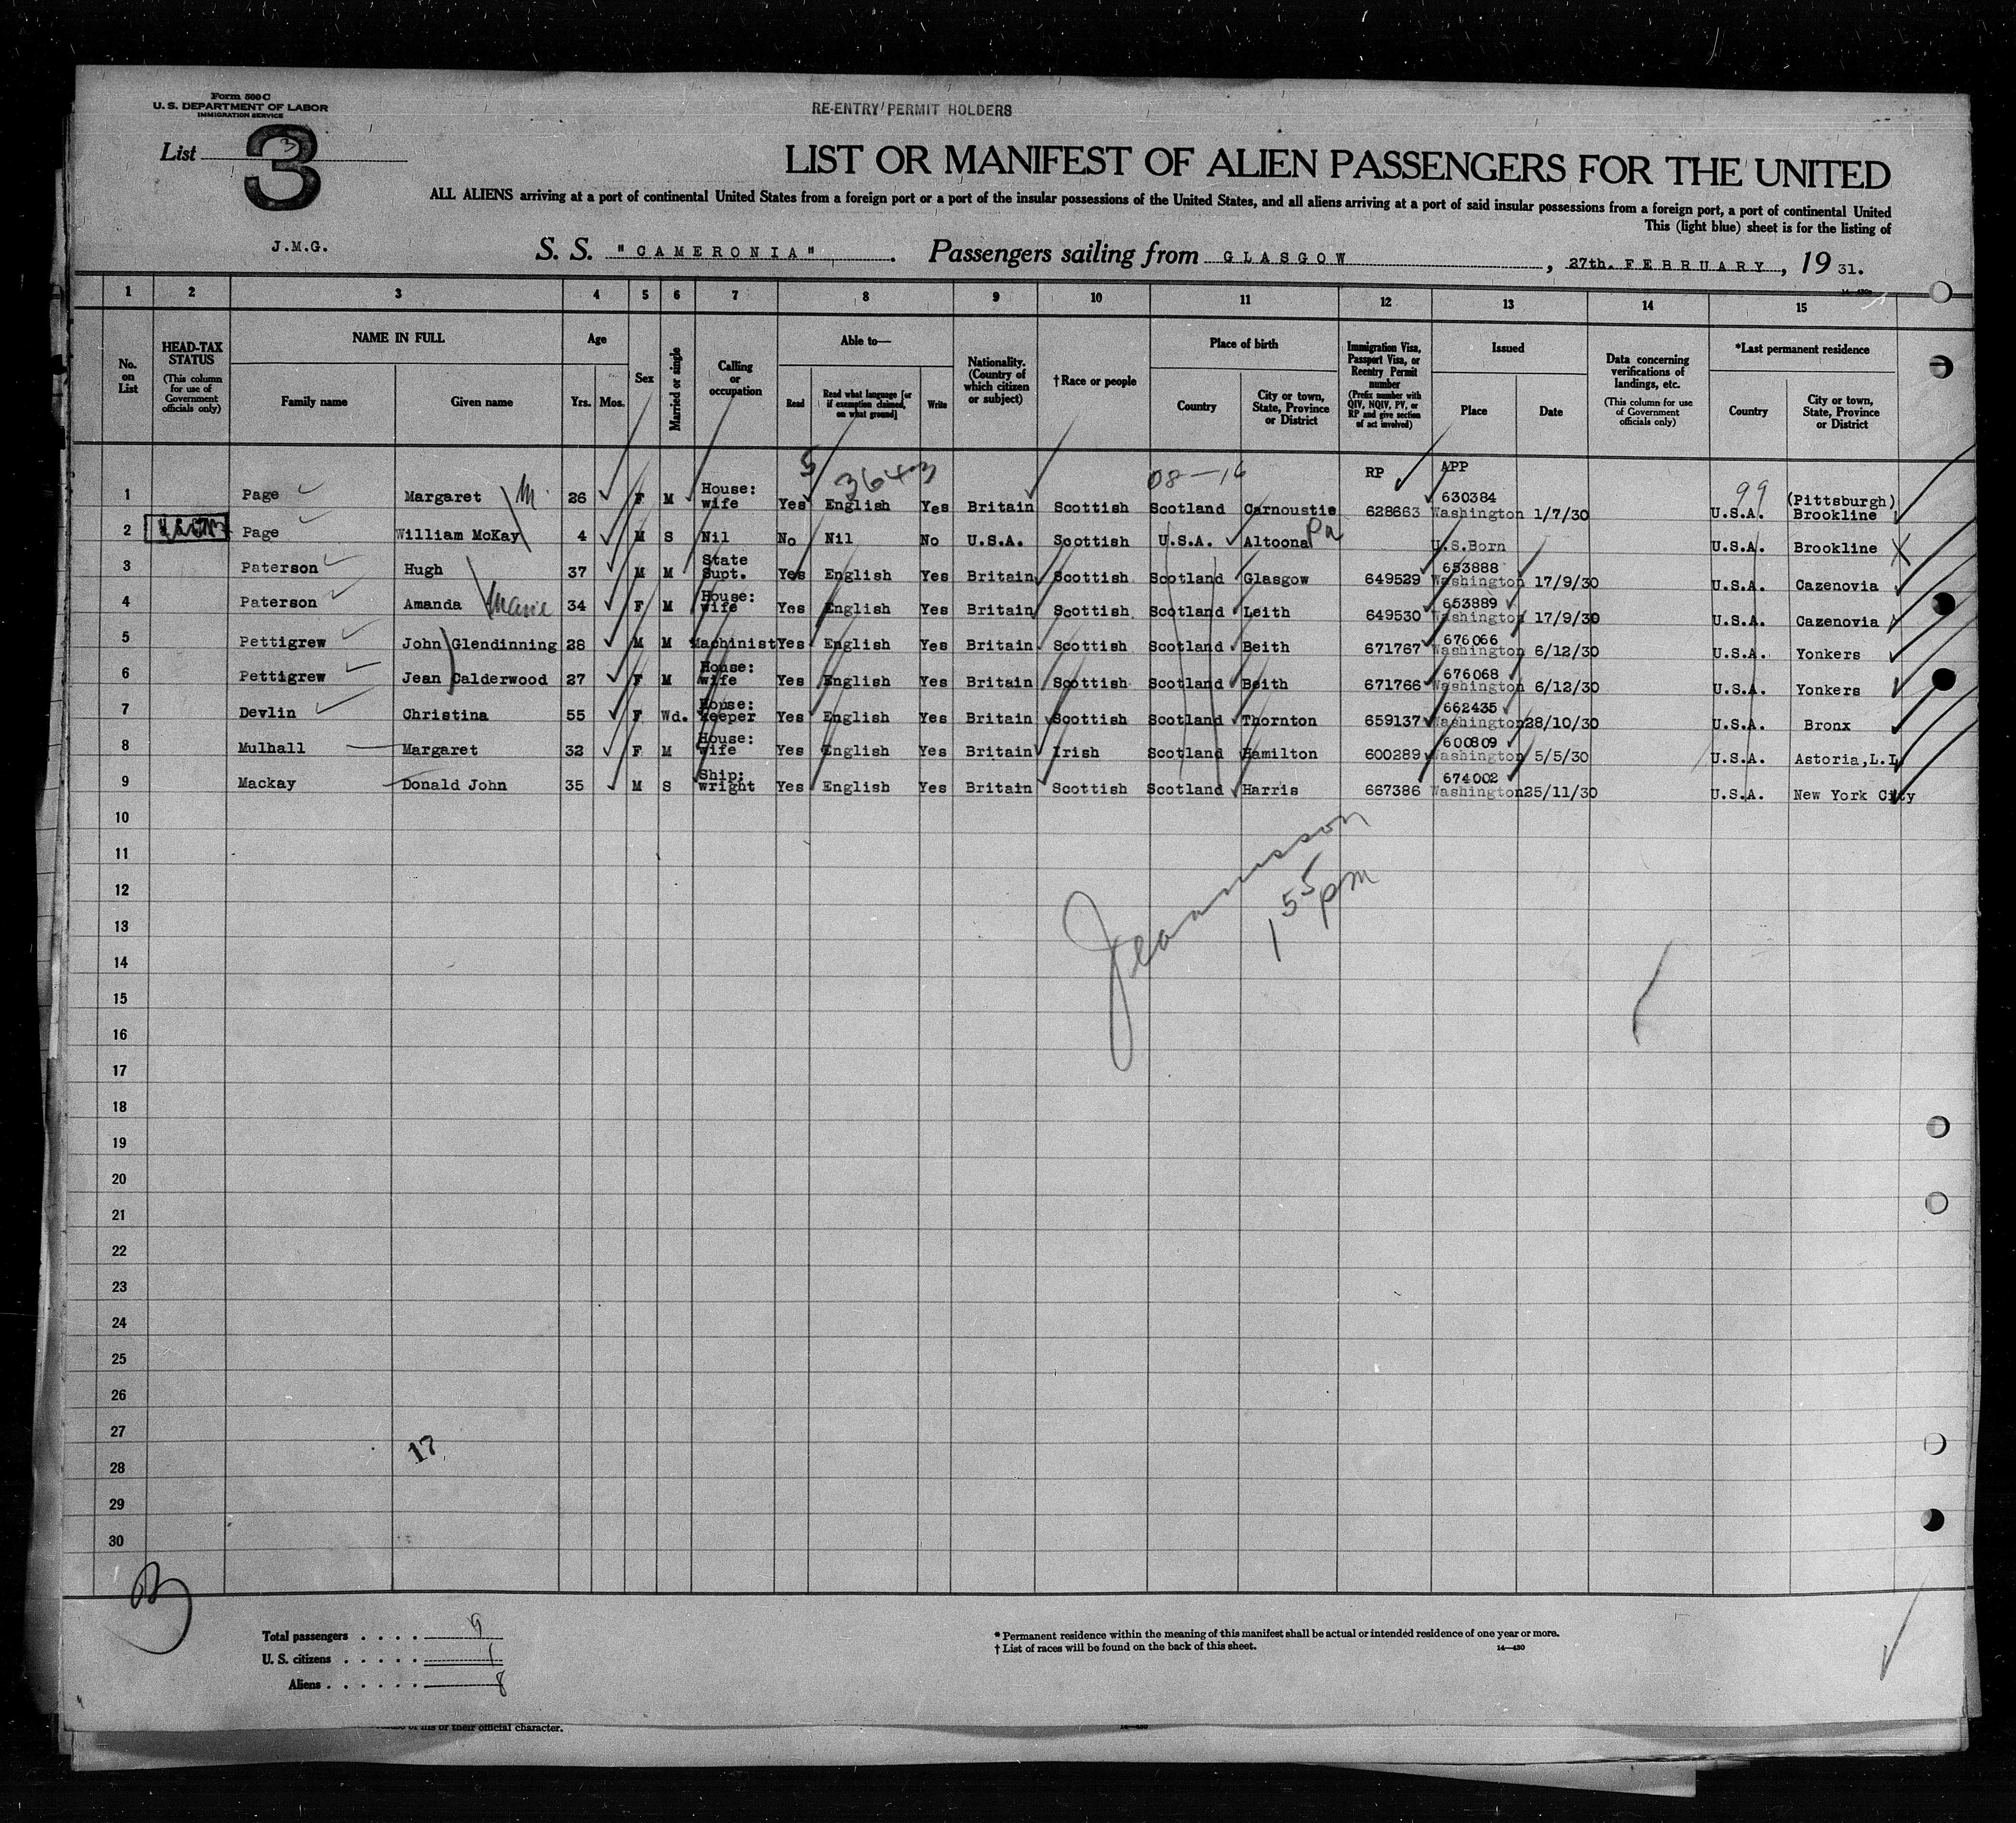 Form 500 C
U. S. DEPARTMENT OF LABOR
IMMIGRATION SERVICE
RE-ENTRY PERMIT HOLDERS
List 3
3
LIST OR MANIFEST OF ALIEN PASSENGERS FOR THE UNITED
ALL ALIENS arriving at a port of continental United States from a foreign port or a port of the insular possessions of the United States, and all aliens arriving at a port of said insular possessions from a foreign port, a port of continental United
This (light blue) sheet is for the listing of
J.M.G.
S. S. "CAMERONIA". Passengers sailing from GLASGOW, 27th. FEBRUARY, 1931.
1 2 3 4 5 6 7 8 9 10 11 12 13 14 15
No. on List
HEAD-TAX STATUS (This column for use of Government officials only)
NAME IN FULL
Family name Given name
Age
Yrs. Mos.
Sex
Married or single
Calling or occupation
Able to—
Read Read what language [or if exemption claimed, on what ground] Write
Nationality. (Country of which citizen or subject)
†Race or people
Place of birth
Country City or town, State, Province or District
Immigration Visa, Passport Visa, or Reentry Permit number (Prefix number with QIV, NQIV, PV, or RP and give section of act involved)
Issued
Place Date
Data concerning verifications of landings, etc. (This column for use of Government officials only)
*Last permanent residence
Country City or town, State, Province or District
5 3643 08-16 RP APP 99
1 Page Margaret M. 26 F M House: wife Yes English Yes Britain Scottish Scotland Carnoustie 628663 630384 Washington 1/7/30 U.S.A. (Pittsburgh) Brookline
2 Page William McKay 4 M S Nil No Nil No U.S.A. Scottish U.S.A. Altoona Pa U.S.Born U.S.A. Brookline
3 Paterson Hugh 37 M M State Supt. Yes English Yes Britain Scottish Scotland Glasgow 649529 653888 Washington 17/9/30 U.S.A. Cazenovia
4 Paterson Amanda Marie 34 F M House: wife Yes English Yes Britain Scottish Scotland Leith 649530 653889 Washington 17/9/30 U.S.A. Cazenovia
5 Pettigrew John Glendinning 28 M M Machinist Yes English Yes Britain Scottish Scotland Beith 671767 676066 Washington 6/12/30 U.S.A. Yonkers
6 Pettigrew Jean Calderwood 27 F M House: wife Yes English Yes Britain Scottish Scotland Beith 671766 676068 Washington 6/12/30 U.S.A. Yonkers
7 Devlin Christina 55 F Wd. House: keeper Yes English Yes Britain Scottish Scotland Thornton 659137 662435 Washington 28/10/30 U.S.A. Bronx
8 Mulhall Margaret 32 F M House: wife Yes English Yes Britain Irish Scotland Hamilton 600289 600809 Washington 5/5/30 U.S.A. Astoria, L.I.
9 Mackay Donald John 35 M S Ship: wright Yes English Yes Britain Scottish Scotland Harris 667386 674002 Washington 25/11/30 U.S.A. New York City
10
11
12
13
14
15
16
17
18
19
20
21
22
23
24
25
26
27
28
29
30
1 55 pm
17
Total passengers . . . . 9
U. S. citizens . . . . . 1
Aliens . . . . . . 8
* Permanent residence within the meaning of this manifest shall be actual or intended residence of one year or more.
† List of races will be found on the back of this sheet.
14—430
of his or their official character.